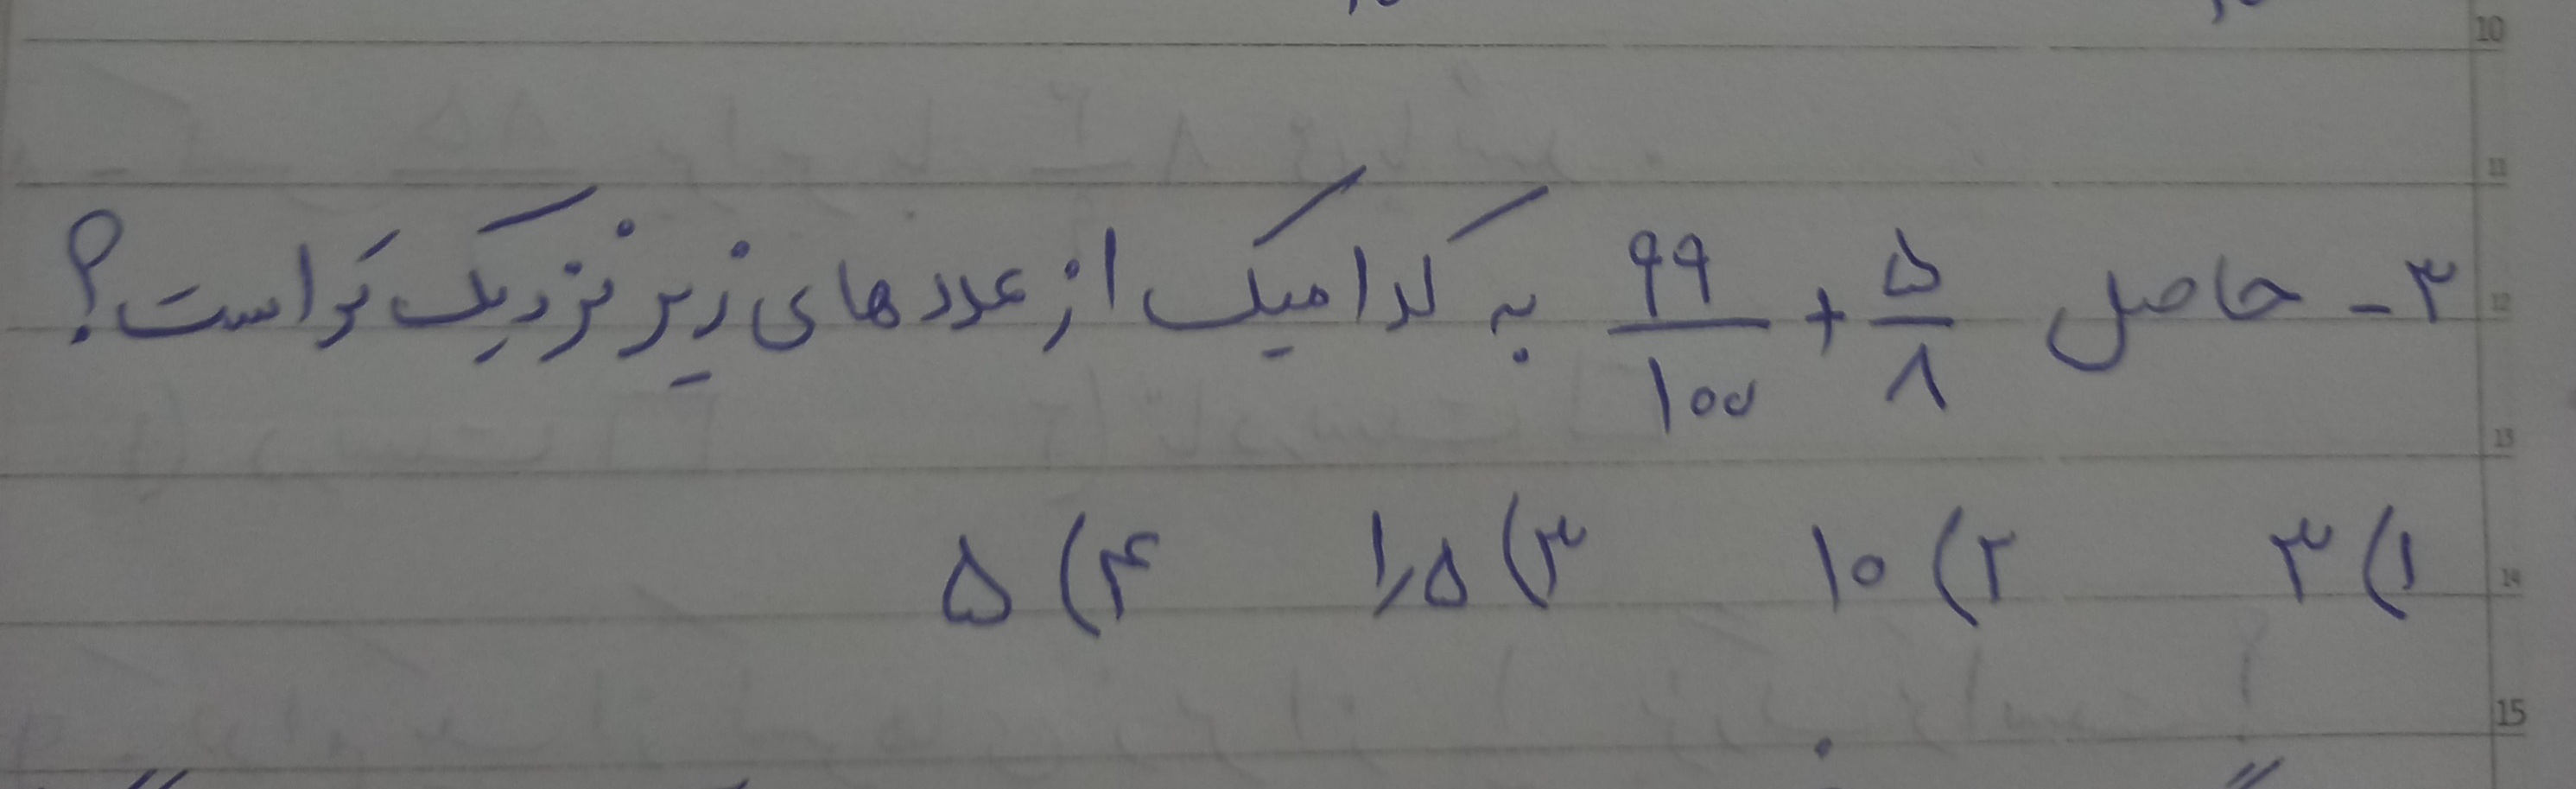 10
11
۳- حاصل ۵/۸ + ۹۹/۱۰۰ به کدامیک از عددهای زیر نزدیک تر است؟
12
13
۱) ۳ ۲) ۱۰ ۳) ۱٫۵ ۴) ۵
14
15